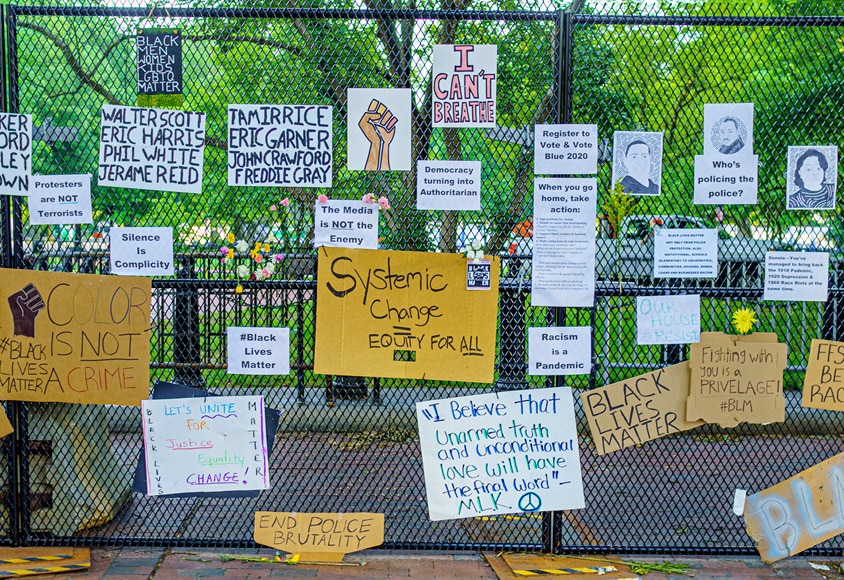 BLACK
MEN
WOMEN
KIDS
LGBTQ
MATTER
I
CAN'T
BREATHE
WALTER SCOTT
ERIC HARRIS
PHIL WHITE
JERAME REID
TAMIR RICE
ERIC GARNER
JOHN CRAWFORD
FREDDIE GRAY
KER
ORD
LEY
OWN
Protesters
are NOT
Terrorists
Democracy
turning into
Authoritarian
Register to
Vote & Vote
Blue 2020
Who's
policing the
police?
The Media
is NOT the
Enemy
When you go
home, take
action:
Silence Is
Complicity
BLACK LIVES MATTER
NOT ONLY FROM POLICE
PROTECTION, ALSO,
INSTITUTIONAL SCHOOLS
(ELEMENTARY TO UNIVERSITY),
COMMUNITIES, SCHOOLS, BANKS
LOANS AND BUSINESSES NATION
Donnie—You've
managed to bring back
the 1918 Pademic,
1929 Depression &
1968 Race Riots at the
same time.
COLOR
IS NOT
A CRIME
#BLACK
LIVES
MATTER
Systemic
Change
=
EQUITY FOR ALL
BLACK
LIVES
MATTER
OUR
HOUSE
#RESIST
#Black
Lives
Matter
Racism
is a
Pandemic
Fighting with
you is a
PRIVELAGE!
#BLM
BLACK
LIVES
MATTER
FFS
BE
RAC
LET'S UNITE
FOR
Justice
Equality
CHANGE!
BLACK LIVES
MATTER
"I Believe that
Unarmed truth
and unconditional
love will have
the final word"-
MLK
END POLICE
BRUTALITY
BL